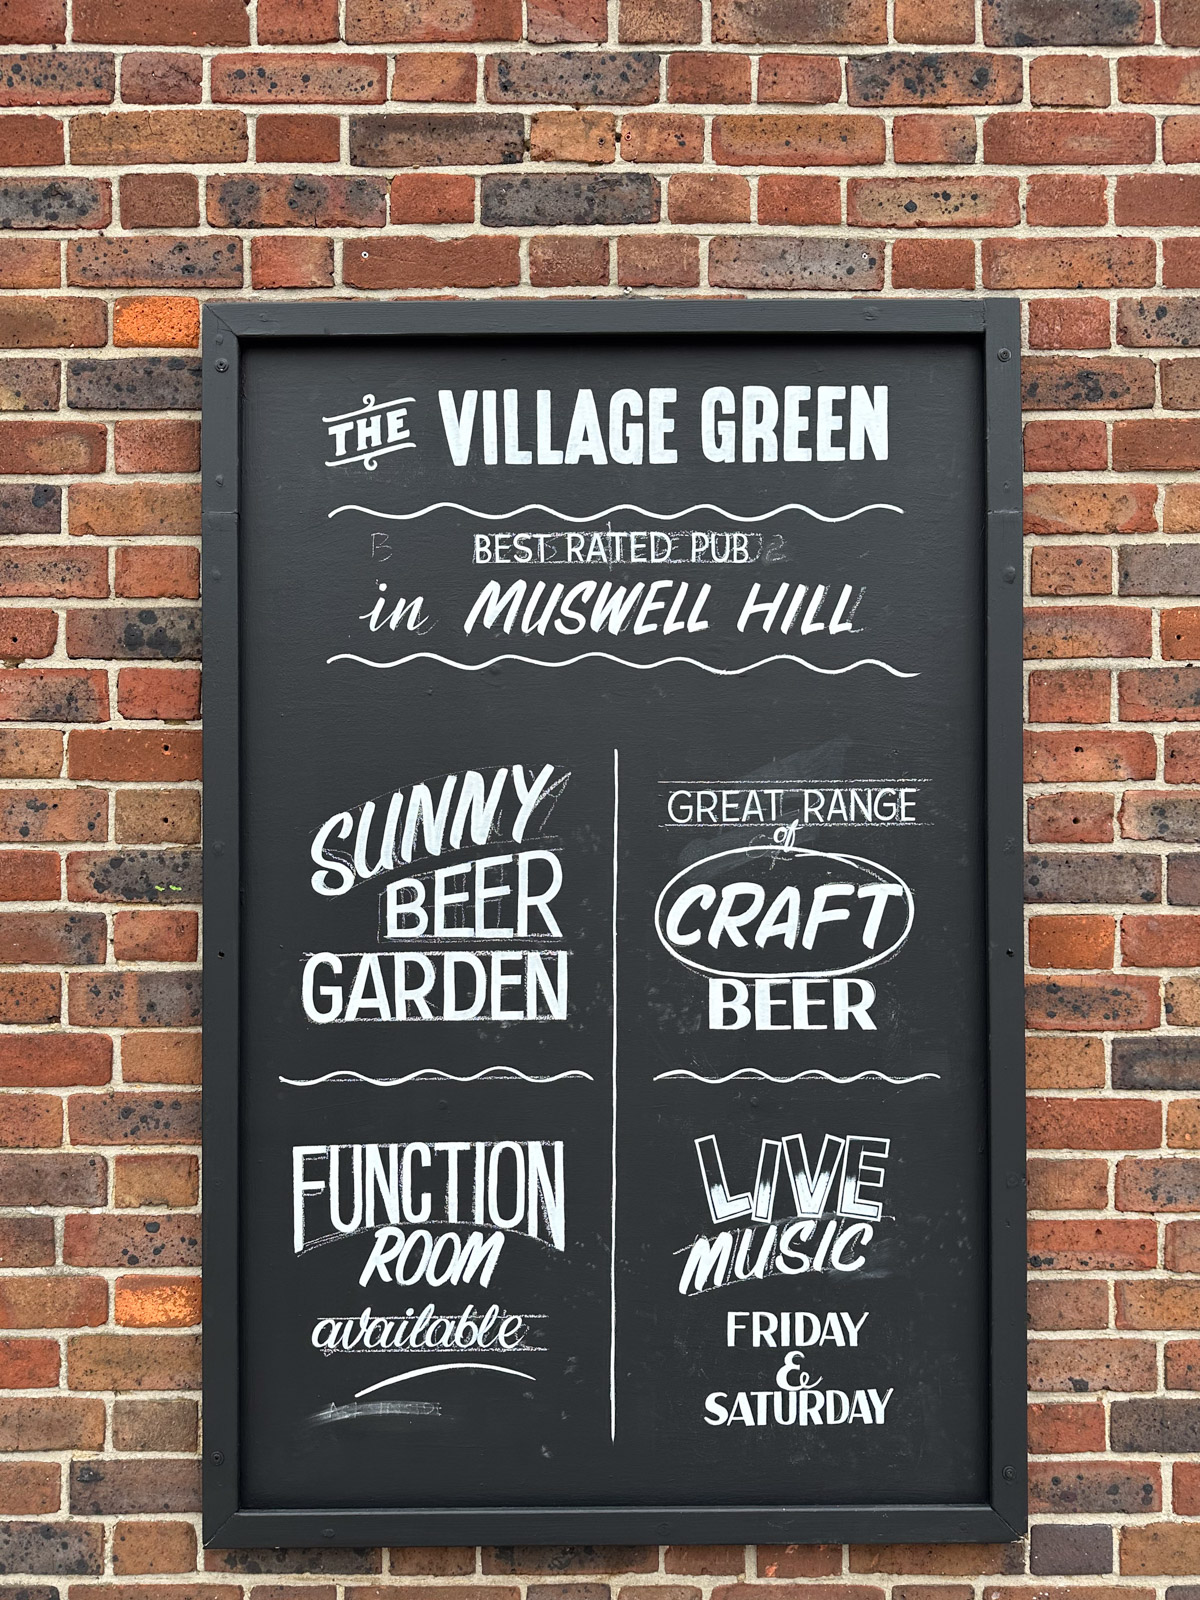 THE VILLAGE GREEN
BEST RATED PUB
in MUSWELL HILL
SUNNY
BEER
GARDEN
GREAT RANGE
of
CRAFT
BEER
FUNCTION
ROOM
available
ASK INSIDE
LIVE
MUSIC
FRIDAY
&
SATURDAY